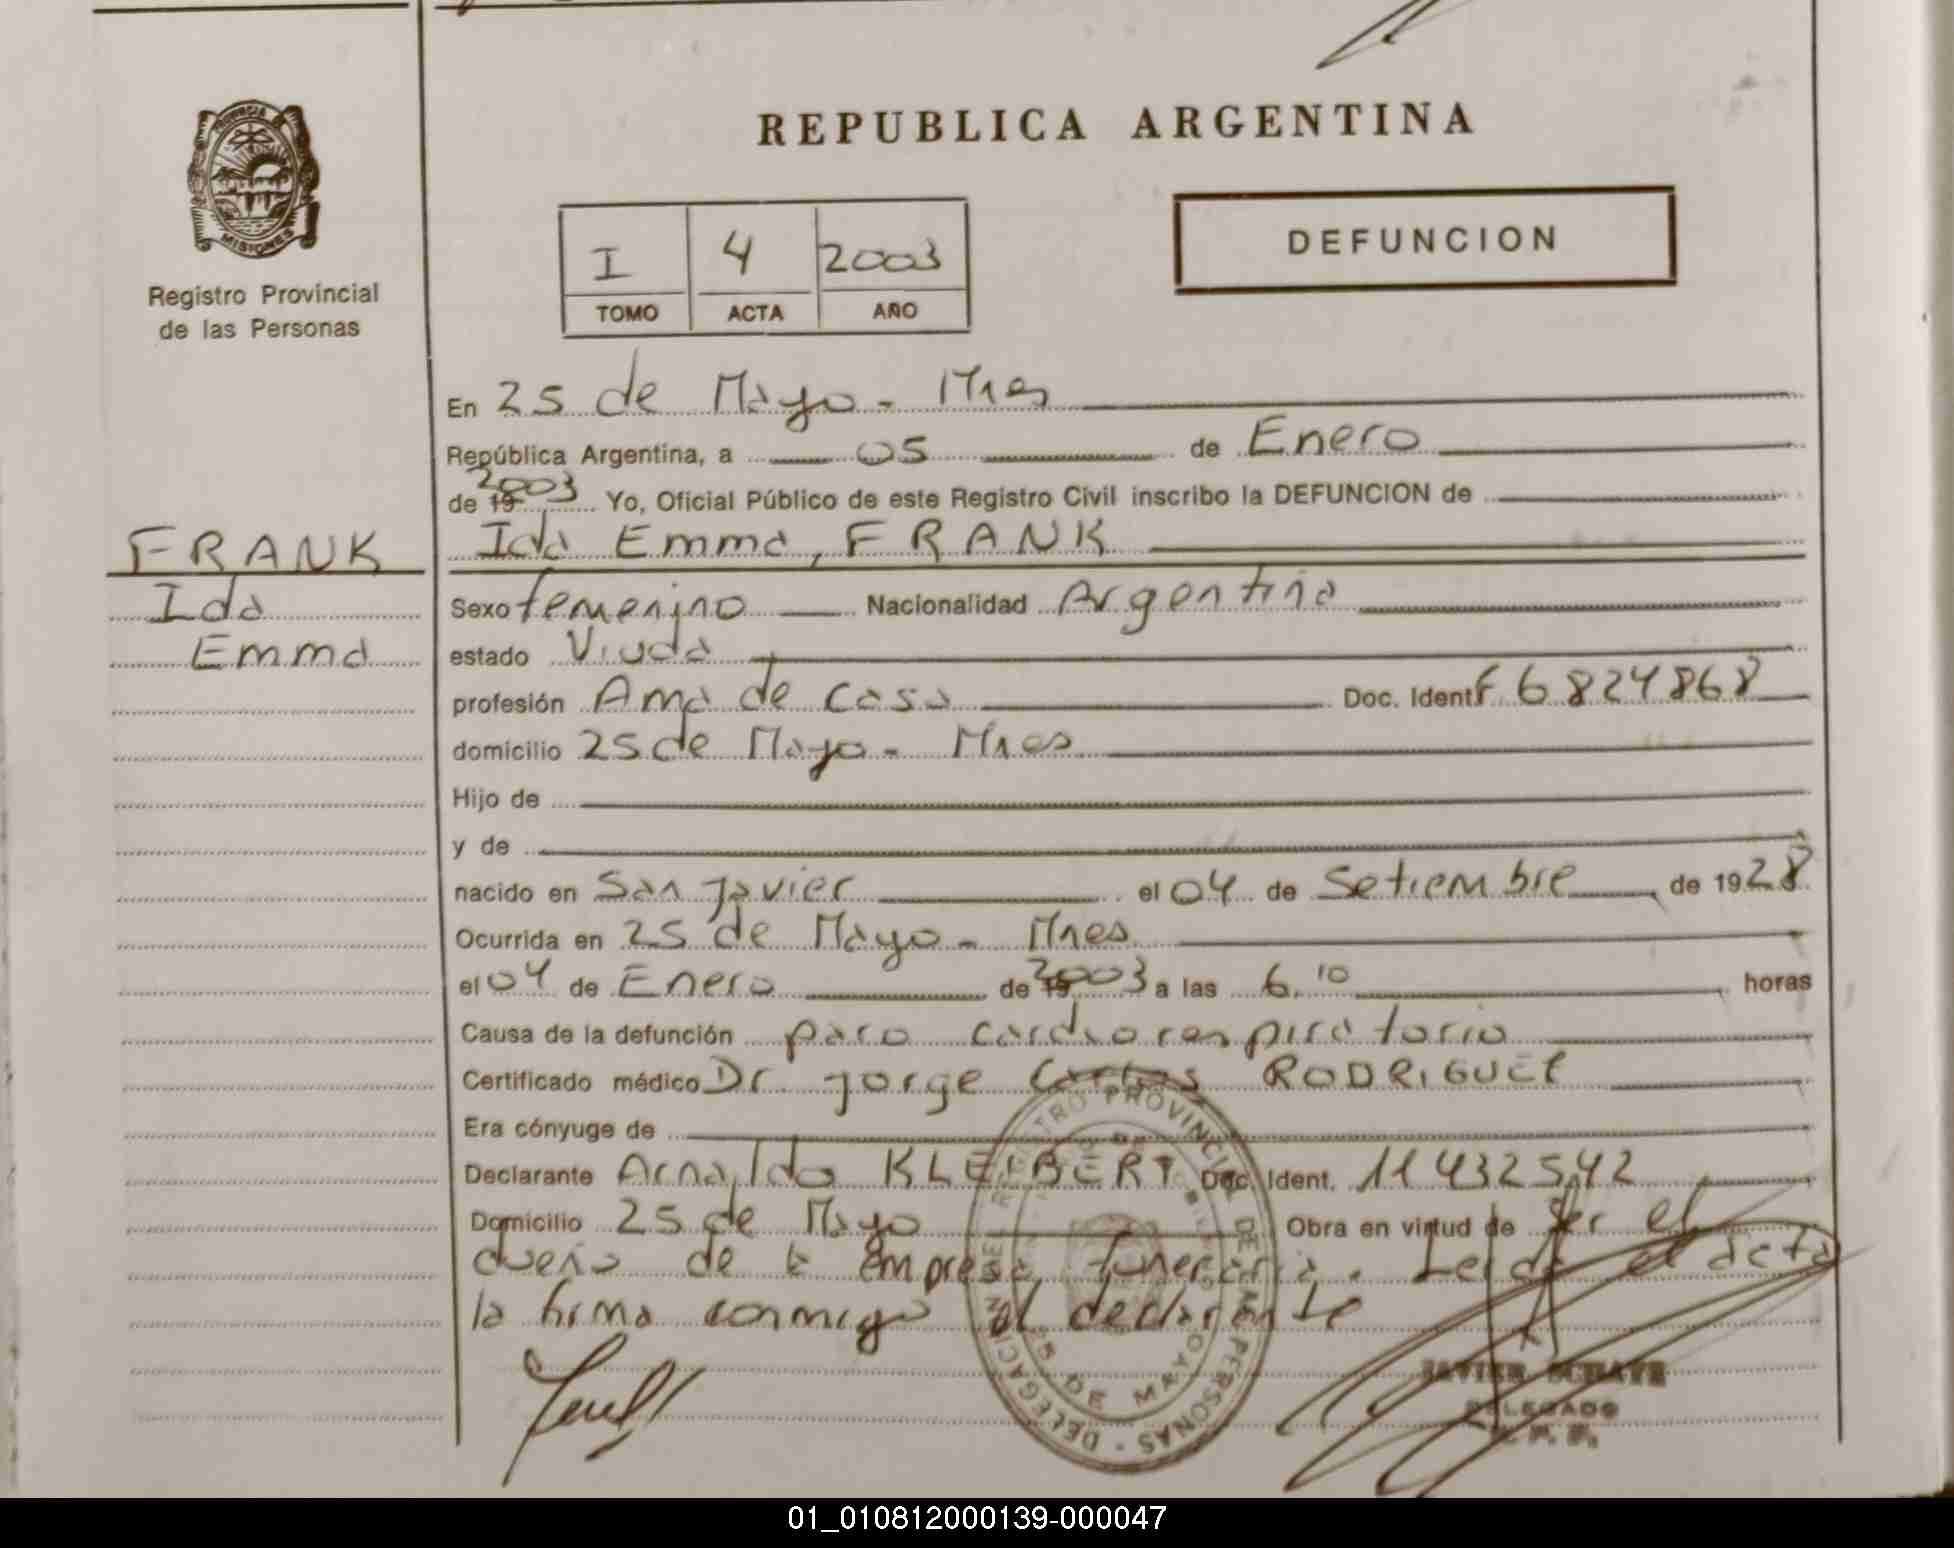 REPUBLICA ARGENTINA
PROVINCIA
MISIONES
Registro Provincial
de las Personas
I 4 2003
TOMO ACTA AÑO
DEFUNCION
En 25 de Mayo - Mnes
República Argentina, a 05 de Enero
de 19 2003 Yo, Oficial Público de este Registro Civil inscribo la DEFUNCION de
FRANK
Ida
Emma
Ida Emma, FRANK
Sexo femenino Nacionalidad Argentina
estado Viuda
profesión Ama de casa Doc. Ident. F 6824868
domicilio 25 de Mayo - Mnes
Hijo de
y de
nacido en San Javier el 04 de Setiembre de 1928
Ocurrida en 25 de Mayo - Mnes
el 04 de Enero de 19 2003 a las 6.10 horas
Causa de la defunción paro cardiorespiratorio
Certificado médico Dr. Jorge Carlos RODRIGUEZ
Era cónyuge de
Declarante Arnaldo KLEIBERT Doc. Ident. 11432542
Domicilio 25 de Mayo Obra en virtud de ser el
dueño de la Empresa funeraria. Leida el acta
la firma conmigo el declarante
REGISTRO PROVINCIAL DE LAS PERSONAS - DELEGACION
25 DE MAYO
JAVIER
DELEGADO
01_010812000139-000047